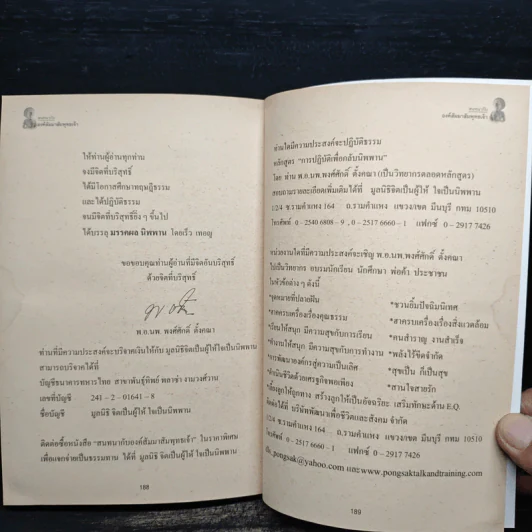 องค์สัมมาสัมพุทธเจ้า
ให้ท่านผู้อ่านทุกท่าน
จงมีจิตที่บริสุทธิ์
ได้มีโอกาสศึกษาทฤษฎีธรรม
และได้ปฏิบัติธรรม
จนมีจิตที่บริสุทธิ์ยิ่ง ๆ ขึ้นไป
ได้บรรลุ มรรคผล นิพพาน โดยเร็ว เทอญ
ขอขอบคุณท่านผู้อ่านที่มีจิตอันบริสุทธิ์
ด้วยจิตที่บริสุทธิ์
พ.อ.นพ. พงศ์ศักดิ์ ตั้งคณา
ท่านที่มีความประสงค์จะบริจาคเงินให้กับ มูลนิธิจิตเป็นผู้ให้ ใจเป็นนิพพาน
สามารถบริจาคได้ที่
บัญชีธนาคารทหารไทย สาขาพันธุ์ทิพย์ พลาซ่า งามวงศ์วาน
เลขที่บัญชี 241 - 2 - 01641 - 8
ชื่อบัญชี มูลนิธิ จิตเป็นผู้ให้ ใจเป็นนิพพาน
ติดต่อซื้อหนังสือ "สนทนากับองค์สัมมาสัมพุทธเจ้า" ในราคาพิเศษ
เพื่อแจกจ่ายเป็นธรรมทาน ได้ที่ มูลนิธิ จิตเป็นผู้ให้ ใจเป็นนิพพาน
188
องค์สัมมาสัมพุทธเจ้า
ท่านใดมีความประสงค์จะปฏิบัติธรรม
หลักสูตร "การปฏิบัติเพื่อกลับนิพพาน"
โดย ท่าน พ.อ.นพ.พงศ์ศักดิ์ ตั้งคณา (เป็นวิทยากรตลอดหลักสูตร)
สอบถามรายละเอียดเพิ่มเติมได้ที่ มูลนิธิจิตเป็นผู้ให้ ใจเป็นนิพพาน
1/2/4 ซ.รามคำแหง 164 ถ.รามคำแหง แขวง/เขต มีนบุรี กทม 10510
โทรศัพท์ 0 - 2540 6808 - 9 , 0 - 2517 6660 - 1 แฟกซ์ 0 - 2917 7426
หน่วยงานใดที่มีความประสงค์จะเชิญ พ.อ.นพ.พงศ์ศักดิ์ ตั้งคณา
ไปเป็นวิทยากร อบรมนักเรียน นักศึกษา พ่อค้า ประชาชน
ในหัวข้อต่าง ๆ ดังนี้
*จุดหมายที่ปลายฝัน *ชวนลิ้มปัจฉิมนิเทศ
*สาดครบเครื่องเรื่องคุณธรรม *สาครบเครื่องเรื่องสิ่งแวดล้อม
*เรียนให้สนุก มีความสุขกับการเรียน *คนสำราญ งานสำเร็จ
*ทำงานให้สนุก มีความสุขกับการทำงาน *พลังไร้ขีดจำกัด
*การพัฒนาองค์กรสู่ความเป็นเลิศ *สุขเป็น ก็เป็นสุข
*ดำเนินชีวิตด้วยเศรษฐกิจพอเพียง *สานใจสายรัก
*เลี้ยงลูกให้ถูกทาง สร้างลูกให้เป็นอัจฉริยะ เสริมทักษะด้าน E.Q.
ติดต่อได้ที่ บริษัทพัฒนาเพื่อชีวิตและสังคม จำกัด
1/2/4 ซ.รามคำแหง 164 ถ.รามคำแหง แขวง/เขต มีนบุรี กทม 10510
โทร 0 - 2517 6660 - 1 , แฟกซ์ 0 - 2917 7426
pongsak@yahoo.com และ www.pongsaktalkandtraining.com
189